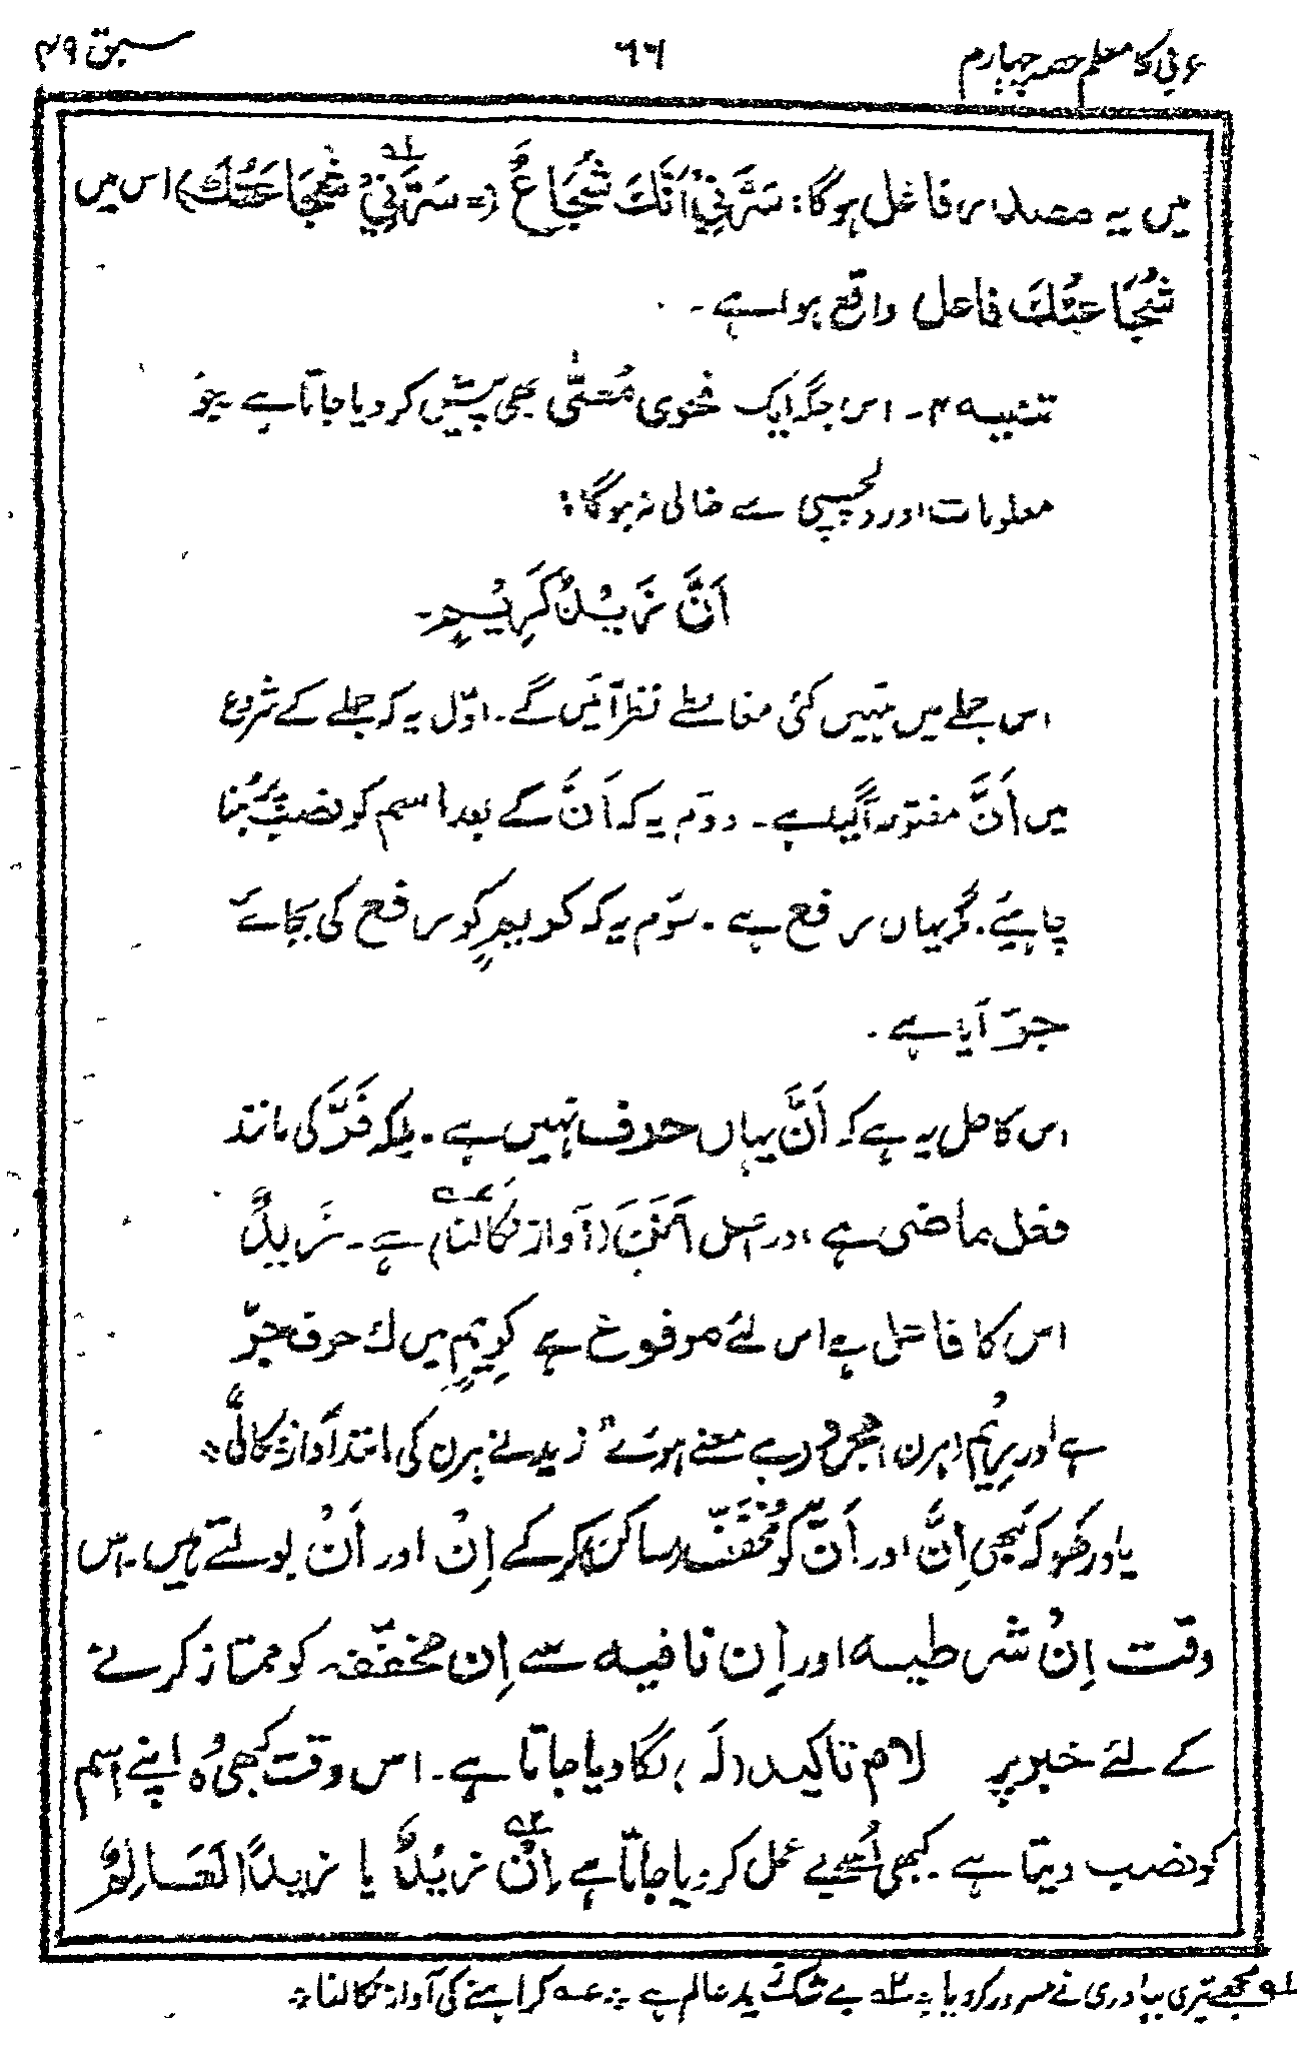 عربی کا معلم حصہ چہارم ۶۶ سبق ۴۹
میں یہ مصدر فاعل ہوگا: سَرَّنِيْ اَنَّكَ شُجَاعٌ (= سَرَّنِيْ شُجَاعَتُكَ)۱؎ اس میں
شُجَاعَتُكَ فاعل واقع ہوا ہے۔
تنبیہ ۴۔ اس جگہ ایک نحوی مُعمّٰی بھی پیش کر دیا جاتا ہے جو
معلومات اور دلچسپی سے خالی نہ ہوگا:
اَنَّ زَيْدٌ كَرِيْمٍ۔
اس جملے میں تمہیں کئی مغالطے نظر آئیں گے۔ اوّل یہ کہ جملے کے شروع
میں اَنَّ مفتوحہ آگیا ہے۔ دوّم یہ کہ اَنَّ کے بعد اسم کو نصب پڑھنا
چاہیئے۔ مگر یہاں رفع ہے۔ سوّم یہ کہ کریمٍ کو رفع کی بجائے
جرّ آیا ہے۔
اس کا حل یہ ہے کہ اَنَّ یہاں حرف نہیں ہے۔ بلکہ فَرَّ کی مانند
فعل ماضی ہے، دراصل اَنَنَ (آواز نکالنا)۳؎ ہے۔ زَیدٌ
اس کا فاعل ہے اس لئے مرفوع ہے كَرِيْمٍ میں ك حرف جرّ
ہے اور رِیْمٍ (ہرن) مجرور ہے معنے ہوئے "زید نے ہرن کی مانند آواز نکالی"
یاد رکھو کہ کبھی اِنَّ اور اَنَّ کو مُخَفَّف (ساکن) کرکے اِنْ اور اَنْ بولتے ہیں۔ اس
وقت اِنْ شرطیہ اور اِن نافیہ سے اِن مخفّفہ کو ممتاز کرنے
کے لئے خبر پر لام تاکید (لَ) لگا دیا جاتا ہے۔ اس وقت کبھی وُہ اپنے اسم
کو نصب دیتا ہے۔ کبھی اُسے بے عمل کر دیا جاتا ہے اِنْ۲؎ زَیْدٌ یا زیداً لَعَالِمٌ
۱؎ مجھے تیری بہادری نے مسرور کر دیا ۲؎ بے شک زید عالم ہے ۳؎ کراہنے کی آواز نکالنا